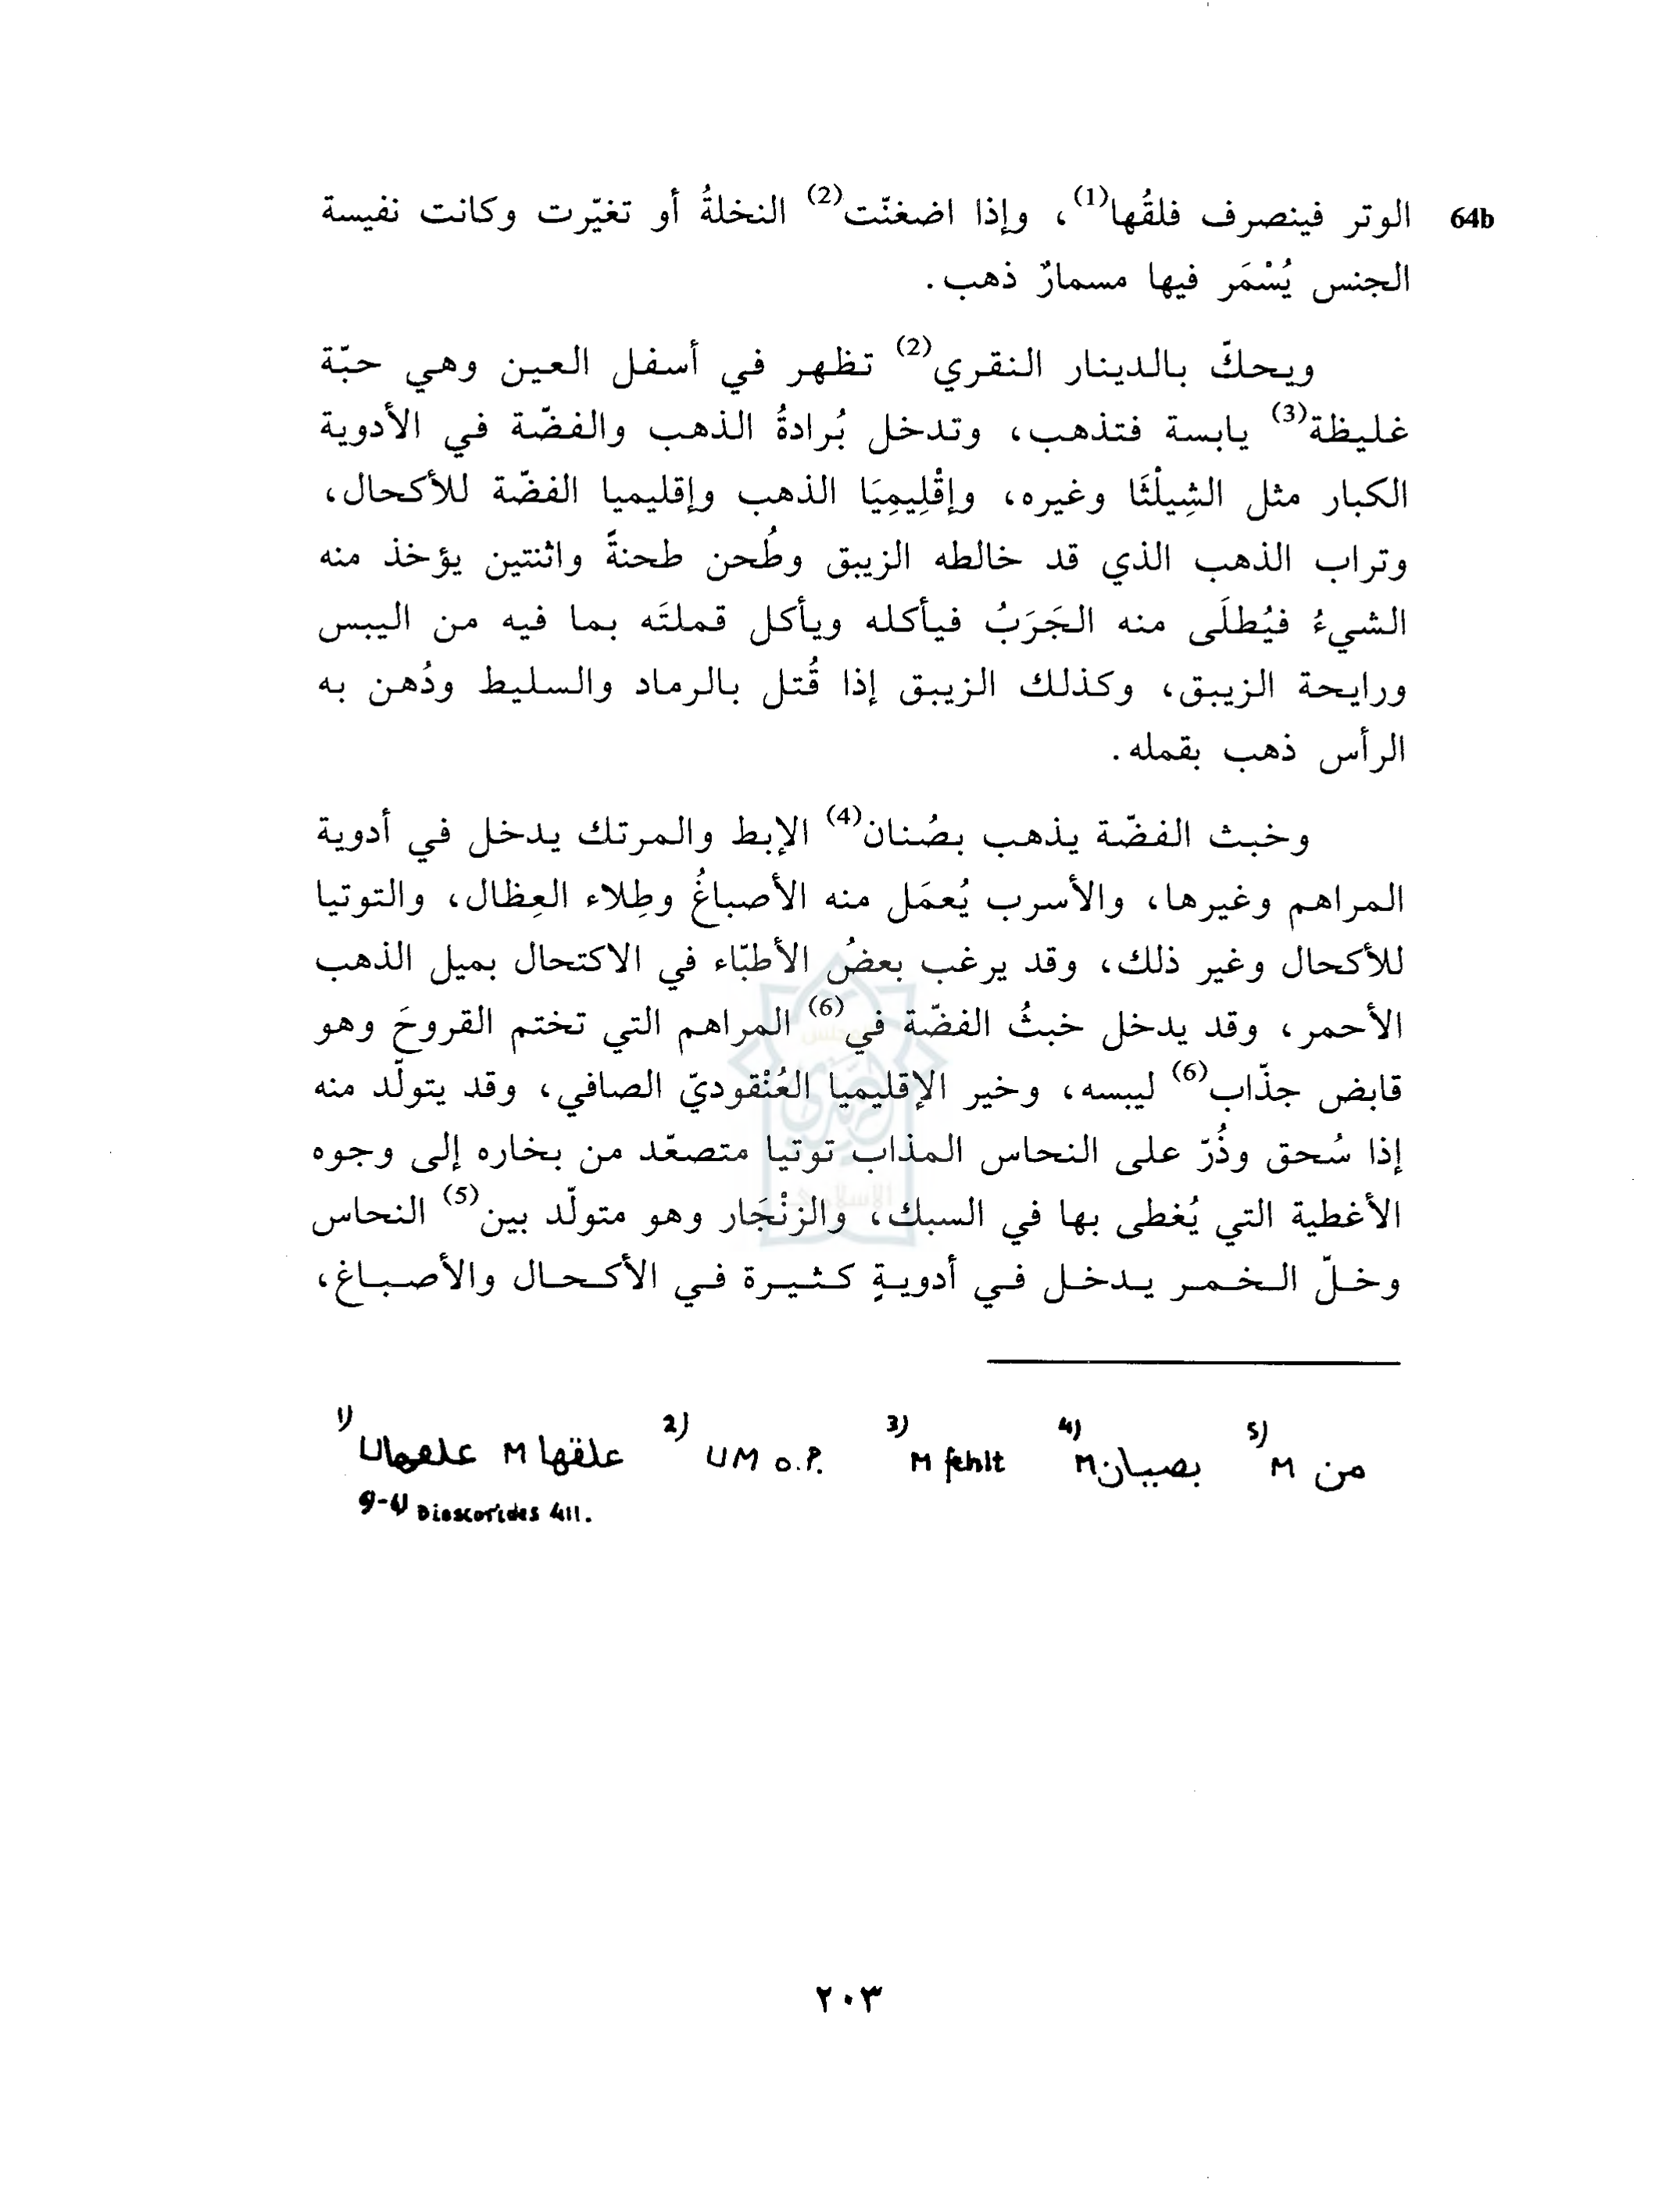 64b الوتر فينصرف فلقُها(1)، وإذا اضغنّت(2) النخلةُ أو تغيّرت وكانت نفيسة
الجنس يُسْمَر فيها مسمارٌ ذهب.
ويحكّ بالدينار النقري(2) تظهر في أسفل العين وهي حبّة
غليظة(3) يابسة فتذهب، وتدخل بُرادةُ الذهب والفضّة في الأدوية
الكبار مثل الشِيلْثَا وغيره، وإقْلِيمِيَا الذهب وإقليميا الفضّة للأكحال،
وتراب الذهب الذي قد خالطه الزيبق وطُحن طحنةً واثنتين يؤخذ منه
الشيءُ فيُطلَى منه الجَرَبُ فيأكله ويأكل قملتَه بما فيه من اليبس
ورايحة الزيبق، وكذلك الزيبق إذا قُتل بالرماد والسليط ودُهن به
الرأس ذهب بقمله.
وخبث الفضّة يذهب بصُنان(4) الإبط والمرتك يدخل في أدوية
المراهم وغيرها، والأسرب يُعمَل منه الأصباغُ وطِلاء العِظال، والتوتيا
للأكحال وغير ذلك، وقد يرغب بعضُ الأطبّاء في الاكتحال بميل الذهب
الأحمر، وقد يدخل خبثُ الفضّة في(6) المراهم التي تختم القروحَ وهو
قابض جذّاب(6) ليبسه، وخير الإقليميا العُنْقوديّ الصافي، وقد يتولّد منه
إذا سُحق وذُرّ على النحاس المذاب توتيا متصعّد من بخاره إلى وجوه
الأغطية التي يُغطى بها في السبك، والزنْجَار وهو متولّد بين(5) النحاس
وخلّ الخمر يدخل في أدويةٍ كثيرة في الأكحال والأصباغ،
1) علقها M 2) UM o.P. 3) M fehlt 4) بصبيان M 5) من M
Dioscorides 411.
٢٠٣